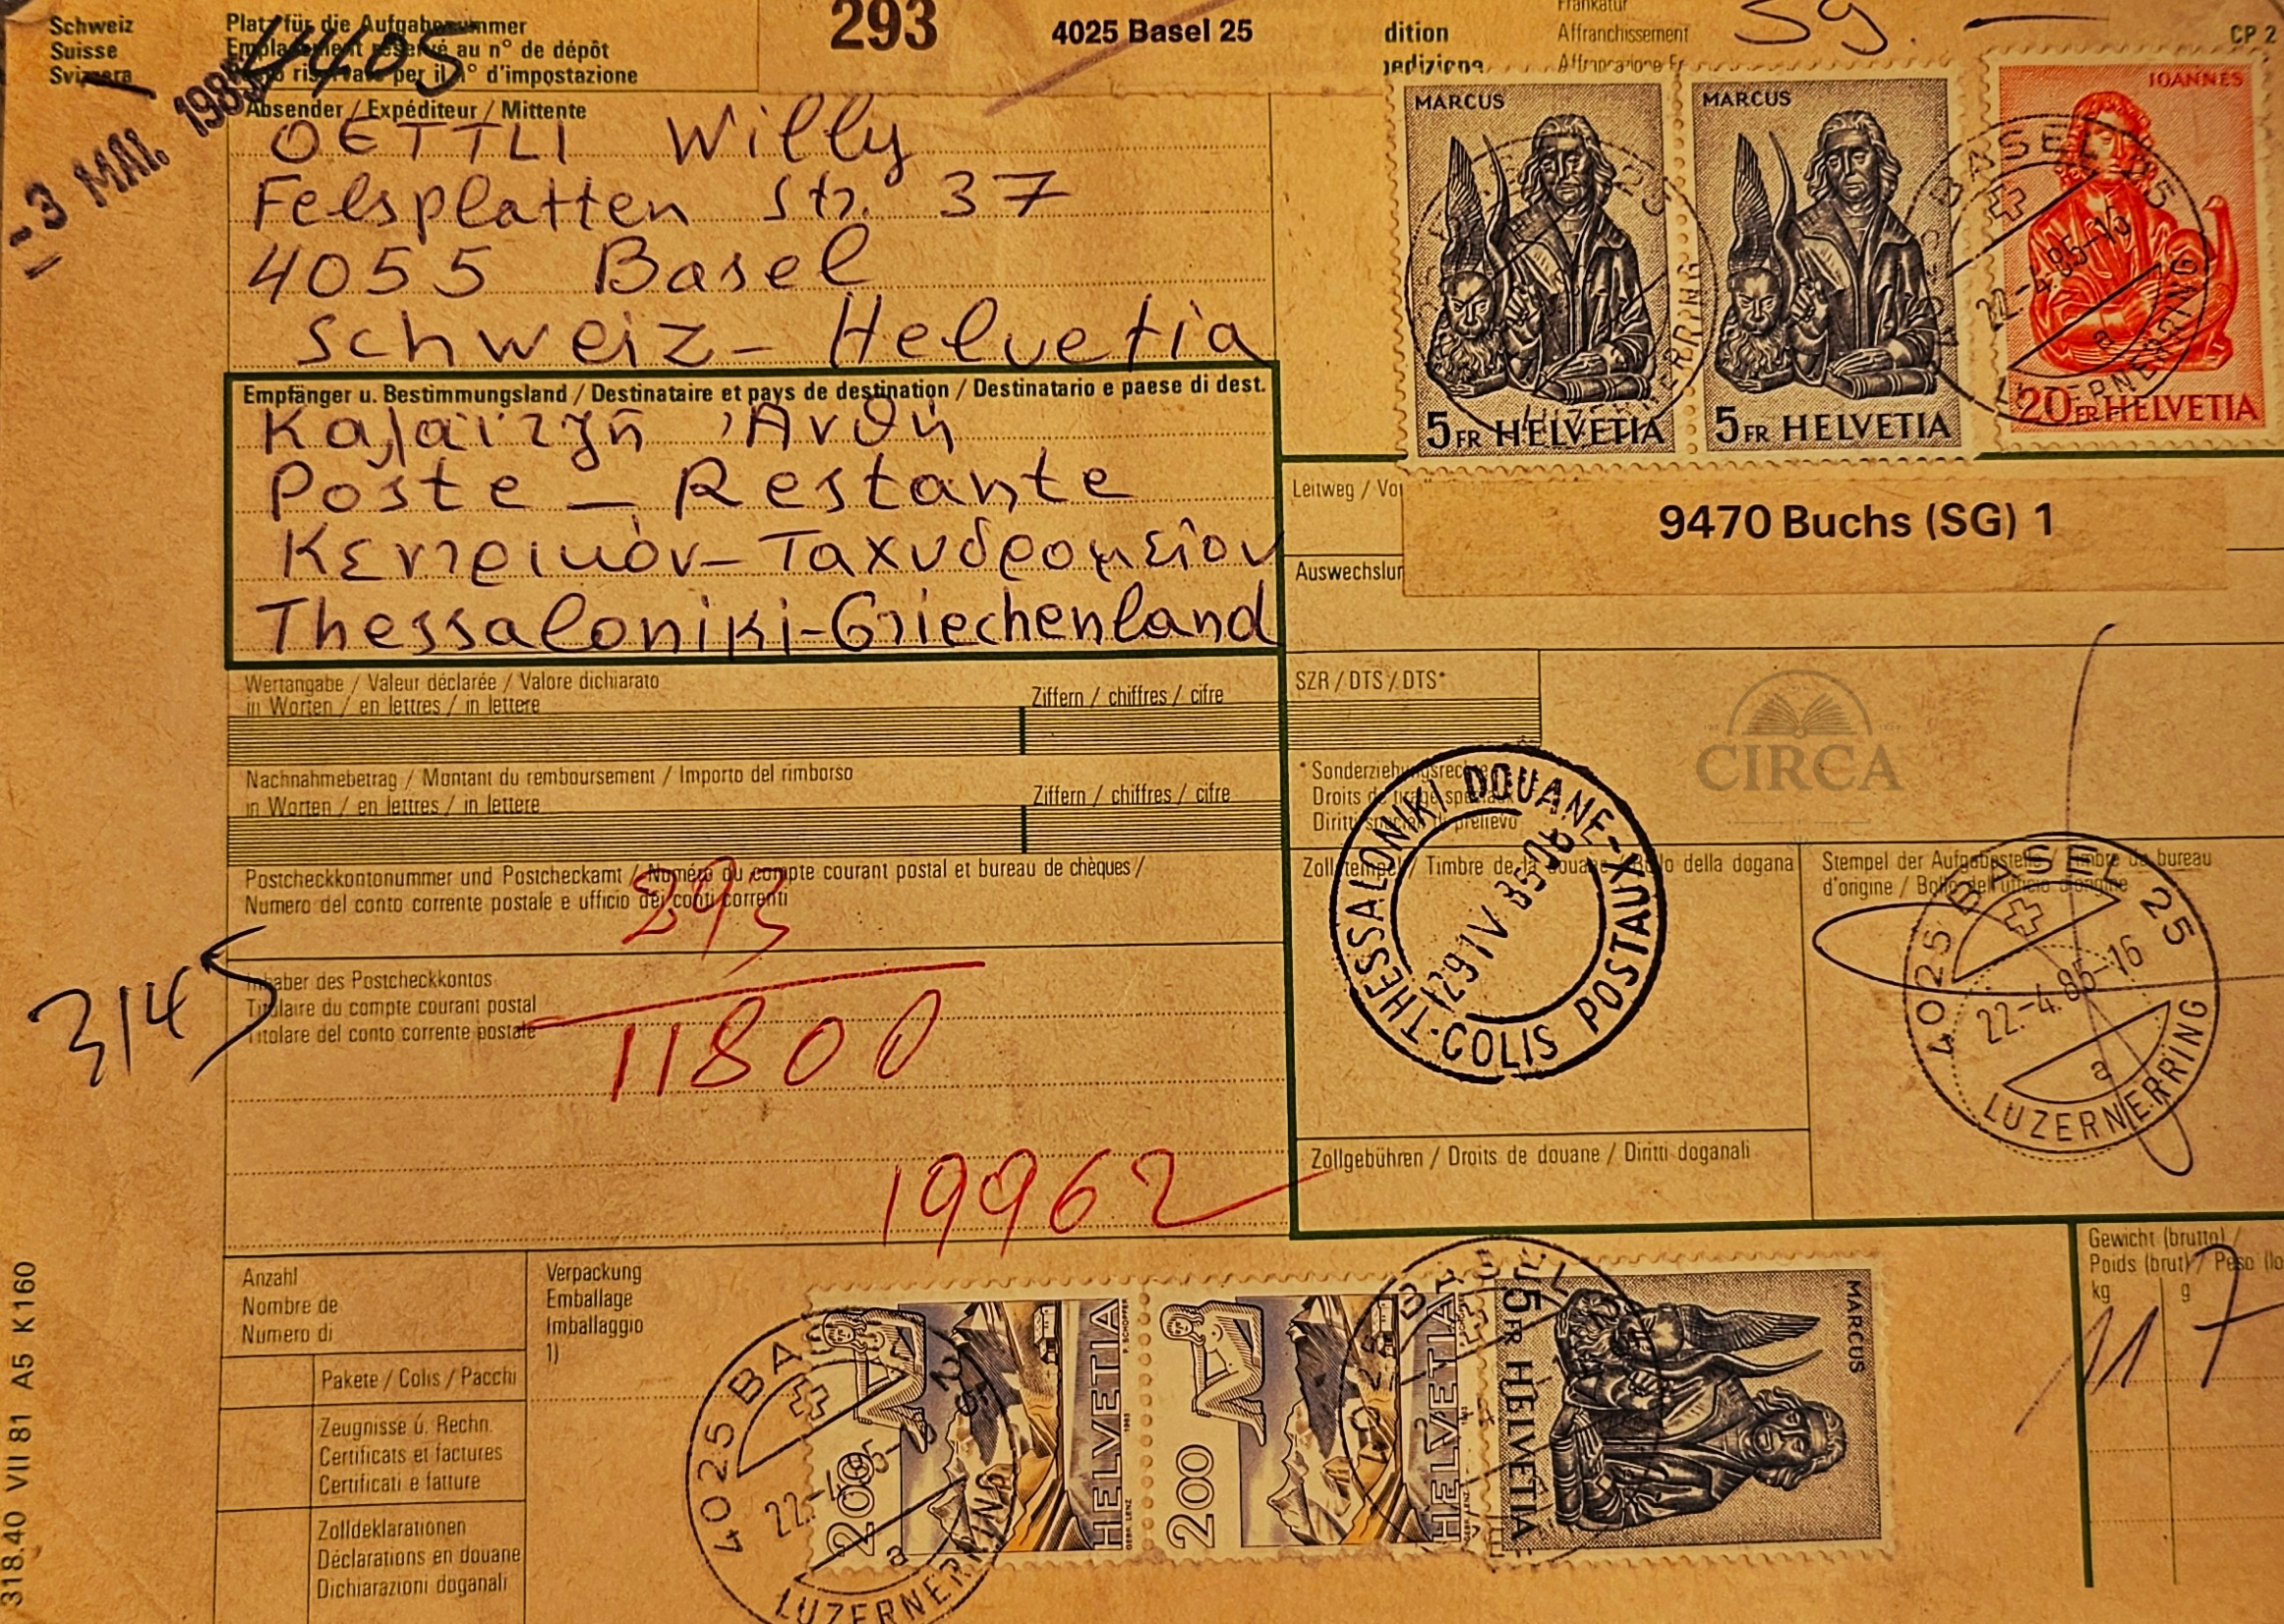 Schweiz
Suisse
Svizzera
Platz für die Aufgabenummer
Emplacement réservé au n° de dépôt
per il n° d'impostazione
4405
293
4025 Basel 25
dition
pedizione
Frankatur
Affranchissement
Affrancazione Fr
39.—
CP 2
-3 MAI. 1985
Absender / Expéditeur / Mittente
OETTLI Willy
Felsplatten Str. 37
4055 Basel
Schweiz - Helvetia
Empfänger u. Bestimmungsland / Destinataire et pays de destination / Destinatario e paese di dest.
Ἀνθή
Poste - Restante
Κεντρικόν - Ταχυδρομεῖον
Thessaloniki - Griechenland
MARCUS
5 FR HELVETIA
MARCUS
5 FR HELVETIA
IOANNES
20 FR HELVETIA
BASEL 25
22.-4.85-15
a
LUZERNERRING
Leitweg / Vo
9470 Buchs (SG) 1
Auswechslun
Wertangabe / Valeur déclarée / Valore dichiarato
in Worten / en lettres / in lettere
Ziffern / chiffres / cifre
SZR / DTS / DTS*
Nachnahmebetrag / Montant du remboursement / Importo del rimborso
in Worten / en lettres / in lettere
Ziffern / chiffres / cifre
* Sonderziehungsrechte
Droits de tirage spéciaux
Diritti speciali di prelievo
CIRCA
THESSALONIKI DOUANE-X
29 IV 85 08
·THESSALONIKI·COLIS POSTAUX
Postcheckkontonummer und Postcheckamt / Numéro du compte courant postal et bureau de chèques /
Numero del conto corrente postale e ufficio dei conti correnti
293
11800
19962
3145
Inhaber des Postcheckkontos
Titulaire du compte courant postal
Titolare del conto corrente postale
Zollstempel / Timbre de la douane / Bollo della dogana
Stempel der Aufgabestelle / Timbre du bureau
d'origine / Bollo dell'ufficio d'origine
4025 BASEL 25
22.-4.85-16
a
LUZERNERRING
Zollgebühren / Droits de douane / Diritti doganali
Gewicht (brutto) /
Poids (brut) / Peso (lo
kg g
11 7
Anzahl
Nombre de
Numero di
Verpackung
Emballage
Imballaggio
1)
Pakete / Colis / Pacchi
Zeugnisse u. Rechn.
Certificats et factures
Certificati e fatture
Zolldeklarationen
Déclarations en douane
Dichiarazioni doganali
4025 BASEL 25
22.-4.85-
a
LUZERNERRING
200 HELVETIA
200 HELVETIA
MARCUS
5 FR HELVETIA
318.40 VII 81 A5 K160